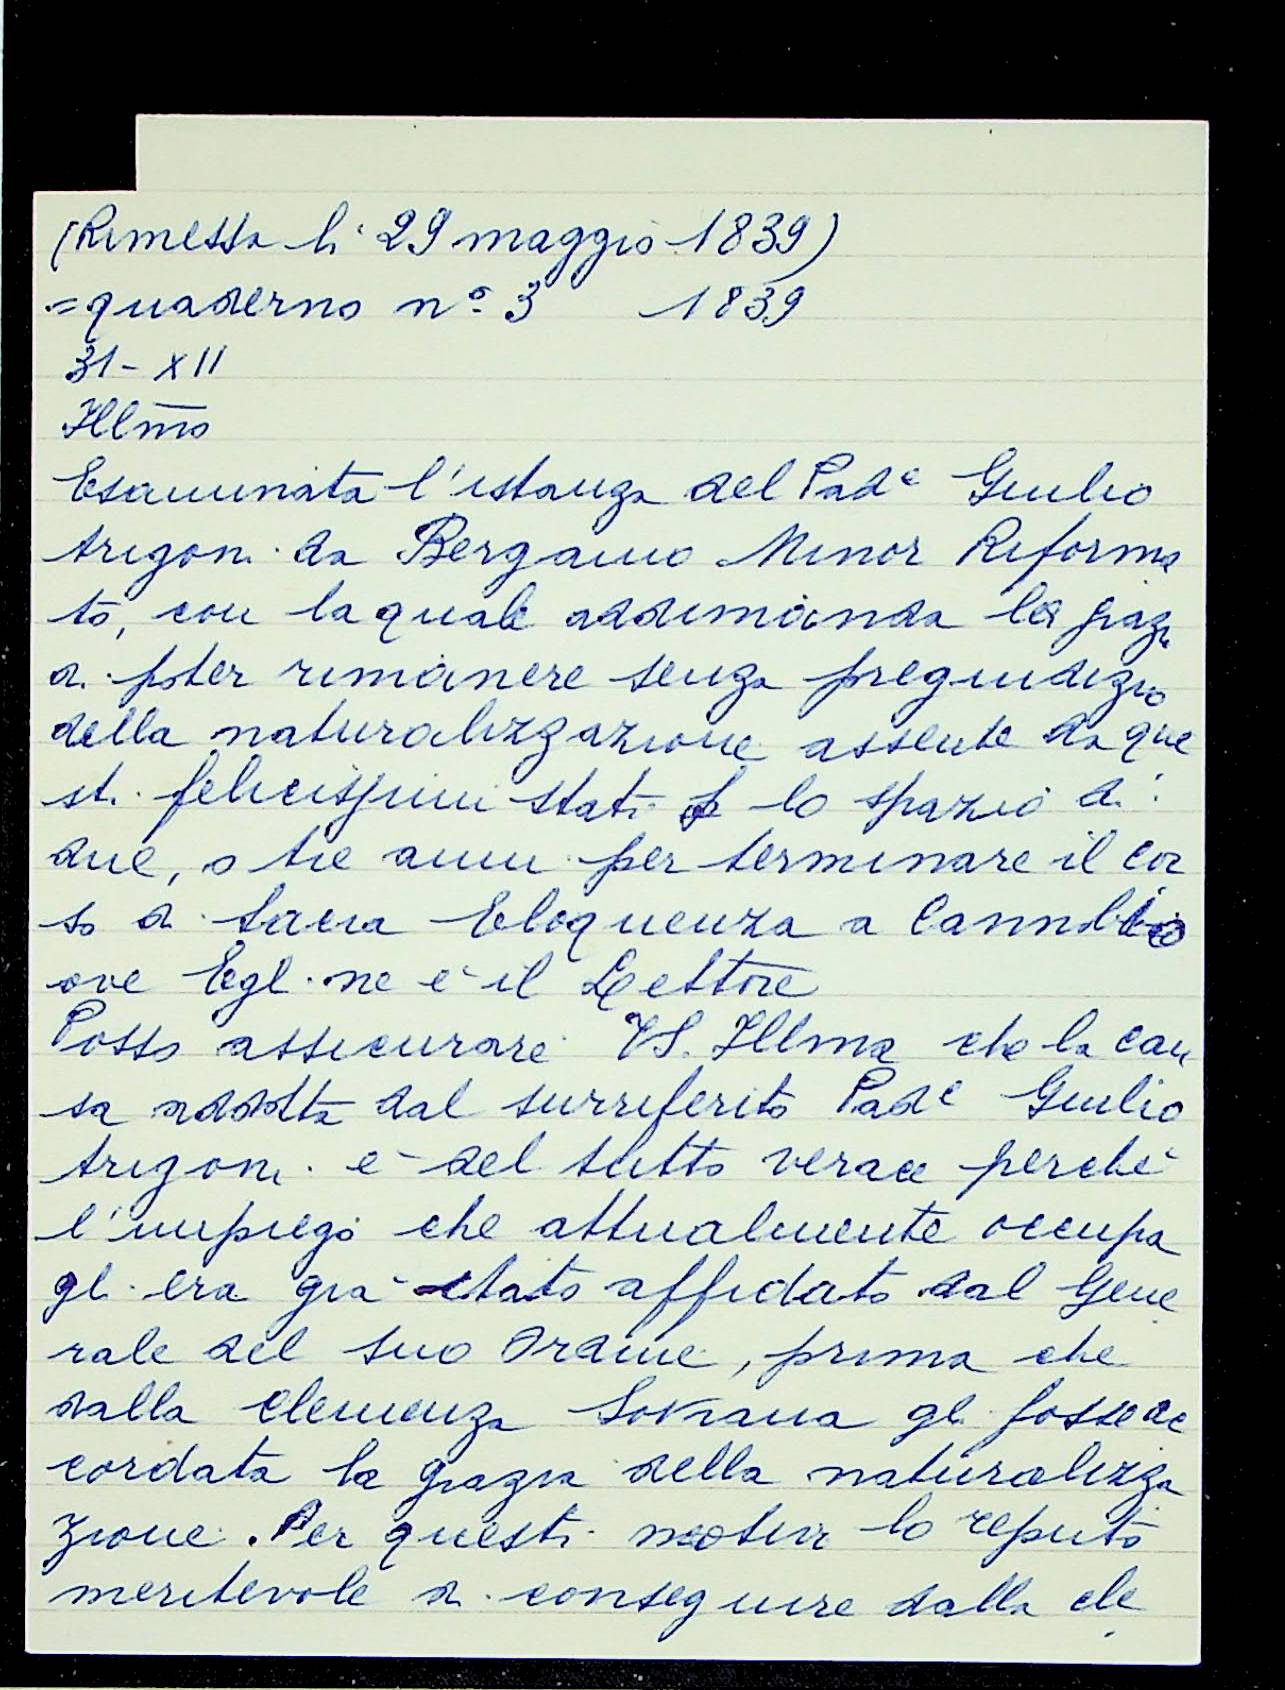 (Rimessa li 29 maggio 1839)
= quaderno nº 3 1839
31 - XII
Illmo
Esaminata l'istanza del Pade Giulio
Arigoni da Bergamo Minor Riforma
to, con la quale addimanda la grazia
di poter rimanere senza pregiudizio
della naturalizzazione assente da que
sti felicissimi stati p lo spazio di
due, o tre anni per terminare il cor
so di Sacra Eloquenza a
ove Egli ne è il Lettore
Posso assicurare VS. Illma che la cau
sa addotta dal surriferito Pade Giulio
Arigoni è del tutto verace perché
l'impiego che attualmente occupa
gli era già stato affidato dal Gene
rale del suo Ordine, prima che
dalla clemenza Sovrana gli fosse ac
cordata la grazia della naturalizza
zione. Per questi motivi lo reputo
meritevole di conseguire dalla cle